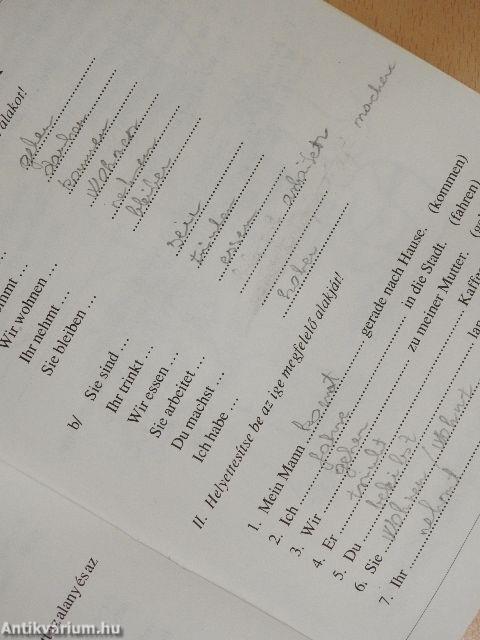 alakot!
gehen
danken
kommen
wohnen
nehmen
bleiben
Wir wohnen ...
Ihr nehmt ...
Sie bleiben ...
b/ Sie sind ... sein
Ihr trinkt ... trinken
Wir essen ... essen
Sie arbeitet ... arbeiten
Du machst ... machen
Ich habe ... haben
II. Helyettesítse be az ige megfelelő alakját!
1. Mein Mann kommt gerade nach Hause. (kommen)
2. Ich fahre in die Stadt. (fahren)
3. Wir gehen zu meiner Mutter.
4. Er trinkt
5. Du
6. Sie wohnen / wohnt
7. Ihr nehmt
alany és az
Antikvárium.hu